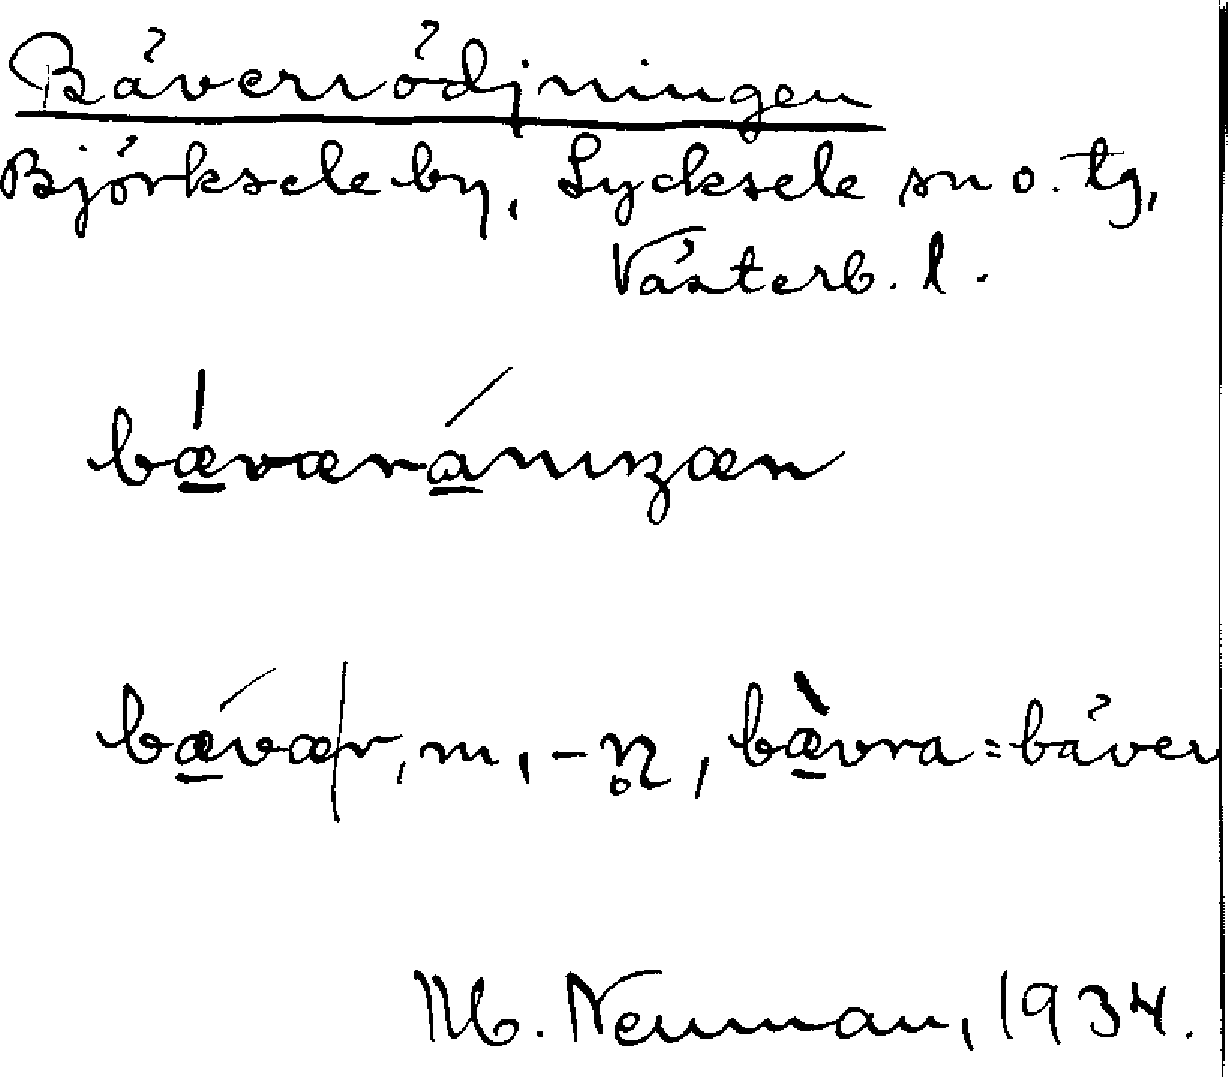 Bäverrödjningen
Björksele by, Lycksele sn o. tg,
Västerb. l.
bævær, m, -n̥, bævra = bäver
M. Neuman, 1934.